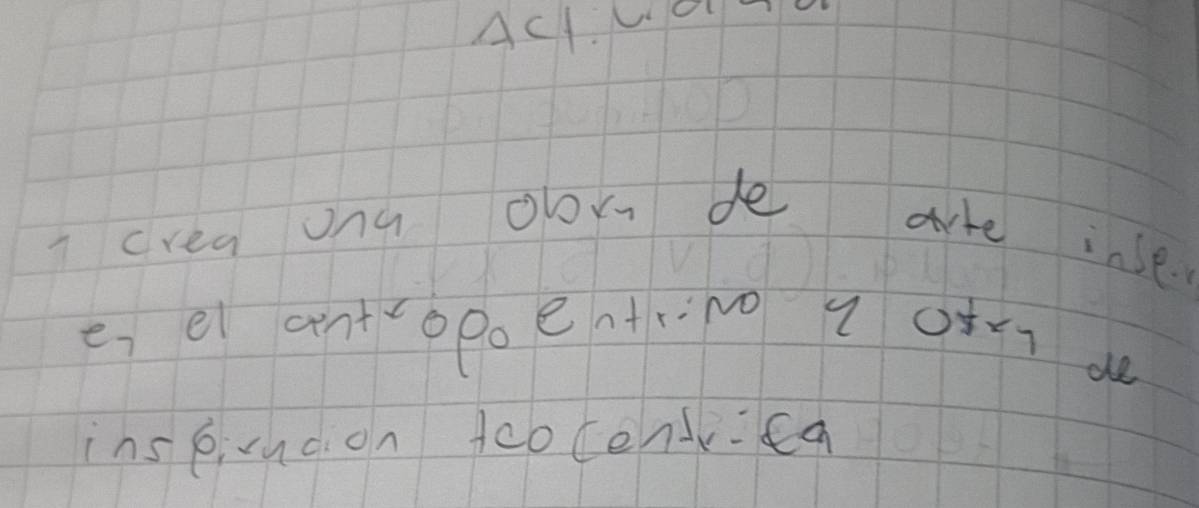 1 crea una obra de arte
en el antropoentrino y otra de
inspiracion teocentrica